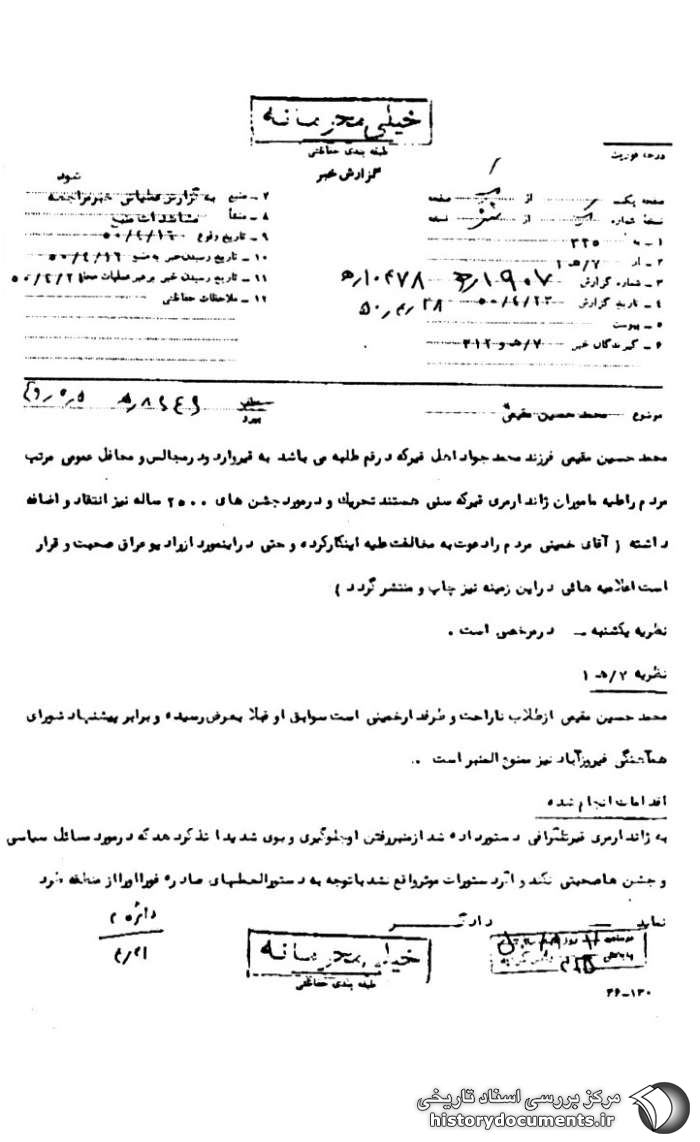 خیلی محرمانه
طبقه بندی حفاظتی
گزارش خبر
درجه فوریت
صفحه یک از صفحه
نسخه شماره از نسخه
۱ - به ۳۲۵
۲ - از ۷/هـ ۱
۳ - شماره گزارش ۱۹۰۷ ۱۰۴۷۸
۴ - تاریخ گزارش ۵۰/۴/۲۳ ۵۰٫۴٫۲۸
۵ - پیوست
۶ - گیرندگان خبر ۷/هـ و ۳۱۲
شود
۷ - منبع به گزارش عملیاتی خبر مراجعه
۸ - منشأ مشاهدات منبع
۹ - تاریخ وقوع ۵۰/۴/۱۶
۱۰ - تاریخ رسیدن خبر به منبع ۵۰/۴/۱۶
۱۱ - تاریخ رسیدن خبر برهبر عملیات ۵۰/۴/۲۱
۱۲ - ملاحظات حفاظتی
موضوع محمد حسین مقیمی
پیرو
محمد حسین مقیمی فرزند محمد جواد اهل قیرکه درقم طلبه می باشد به قیروارد ودرمجالس و محافل عمومی مرتب
مردم راعلیه ماموران ژاندارمری قیرکه سنی هستند تحریک و درمورد جشن های ۲۵۰۰ ساله نیز انتقاد و اضافه
داشته ( آقای خمینی مردم رادعوت به مخالفت علیه اینکارکرده و حتی دراینمورد ازرادیو عراق صحبت و قرار
است اعلامیه هائی دراین زمینه نیز چاپ و منتشر گردد )
نظریه یکشنبه - درمرخصی است .
نظریه ۷/هـ ۱
محمد حسین مقیمی ازطلاب ناراحت و طرفدارخمینی است سوابق او قبلا بعرض رسیده و برابر پیشنهاد شورای
هماهنگی فیروزآباد نیز ممنوع المنبر است .
اقدامات انجام شده
به ژاندارمری قیرتلگرافی دستورداده شد ازمنبررفتن اوجلوگیری و بوی شدیدا تذکردهد که درمورد مسائل سیاسی
و جشن هاصحبتی نکند و اگردستورات موثرواقع نشد باتوجه به دستورالعملهای صادره فورا اورا از منطقه طرد
نماید دادگر
دائره ۲
۴/۲۱
خیلی محرمانه
طبقه بندی حفاظتی
۳۶-۱۳۰
مرکز بررسی اسناد تاریخی
historydocuments.ir